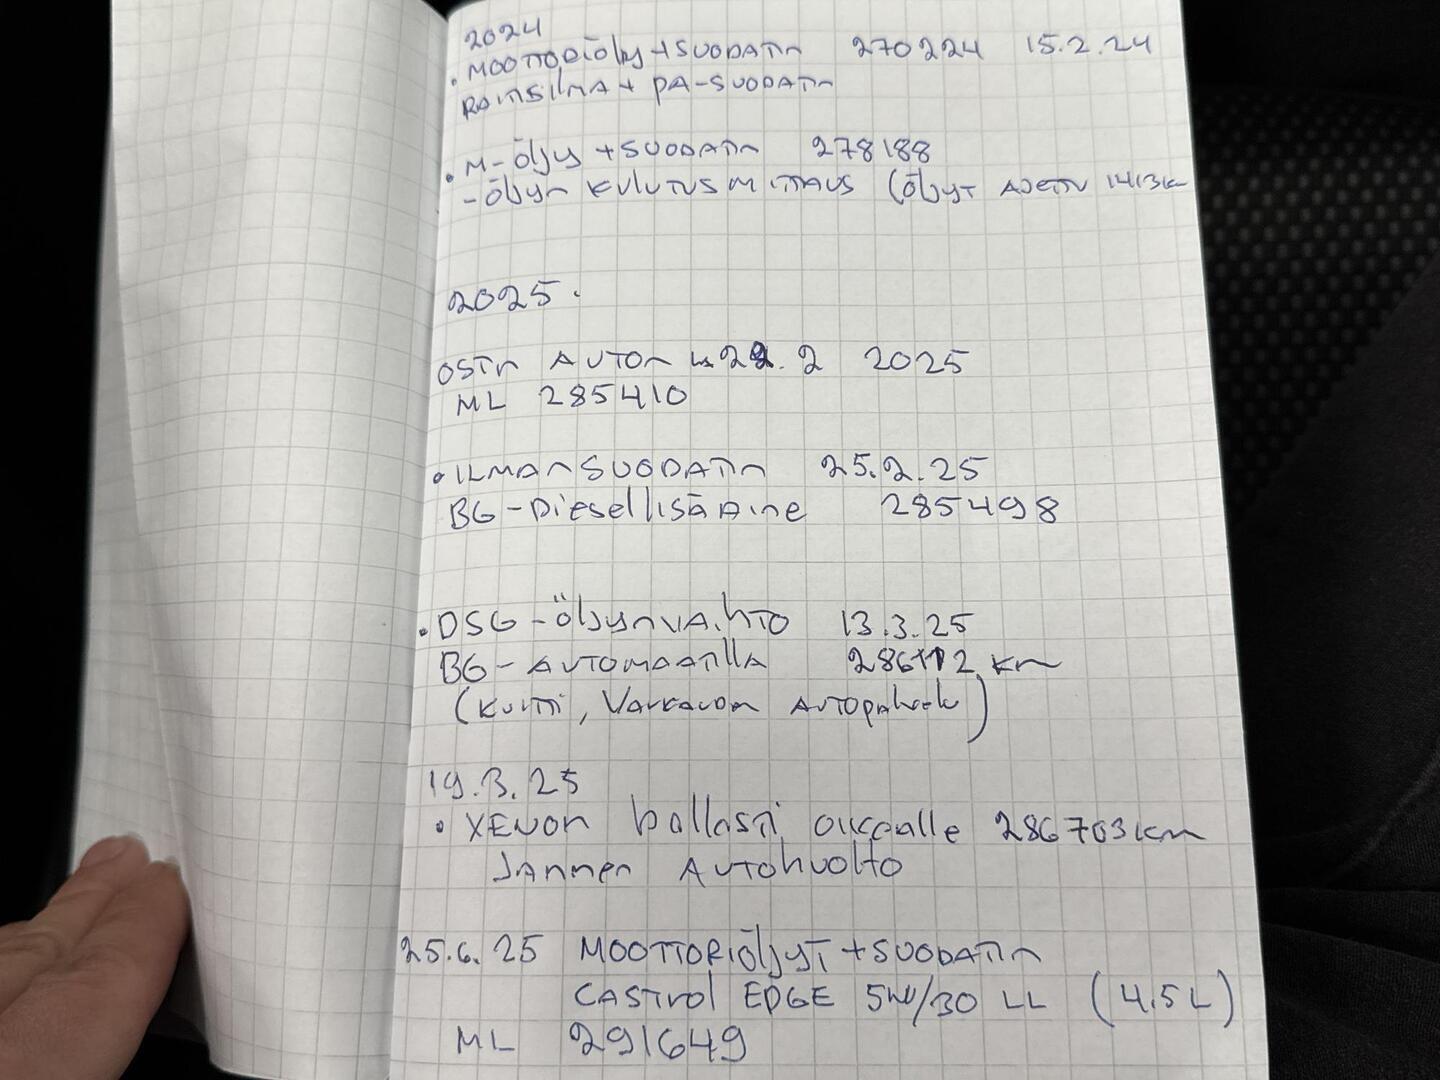 2024
• MOOTTORIÖljy + SUODATIN 270224 15.2.24
RAITISILMA + PA-SUODATIN
• M-Öljy + SUODATIN 278188
- Öljyn KULUTUSMITTAUS (Öljyt AJETTU 1413km
2025.
OSTIN AUTON 22.2 2025
ML 285410
• ILMANSUODATIN 25.2.25
BG-Diesellisäaine 285498
• DSG-ÖljynVAihTO 13.3.25
BG-AUTOMAATILLA 286112 km
(Kurtti, Varkauden Autopalvelu)
19.3.25
• XENON ballasti oikealle 286703 km
Jannen AUTOhuolto
25.6.25 MOOTTORIÖljyT + SUODATIN
CASTrol EDGE 5W/30 LL (4.5L)
ML 291649